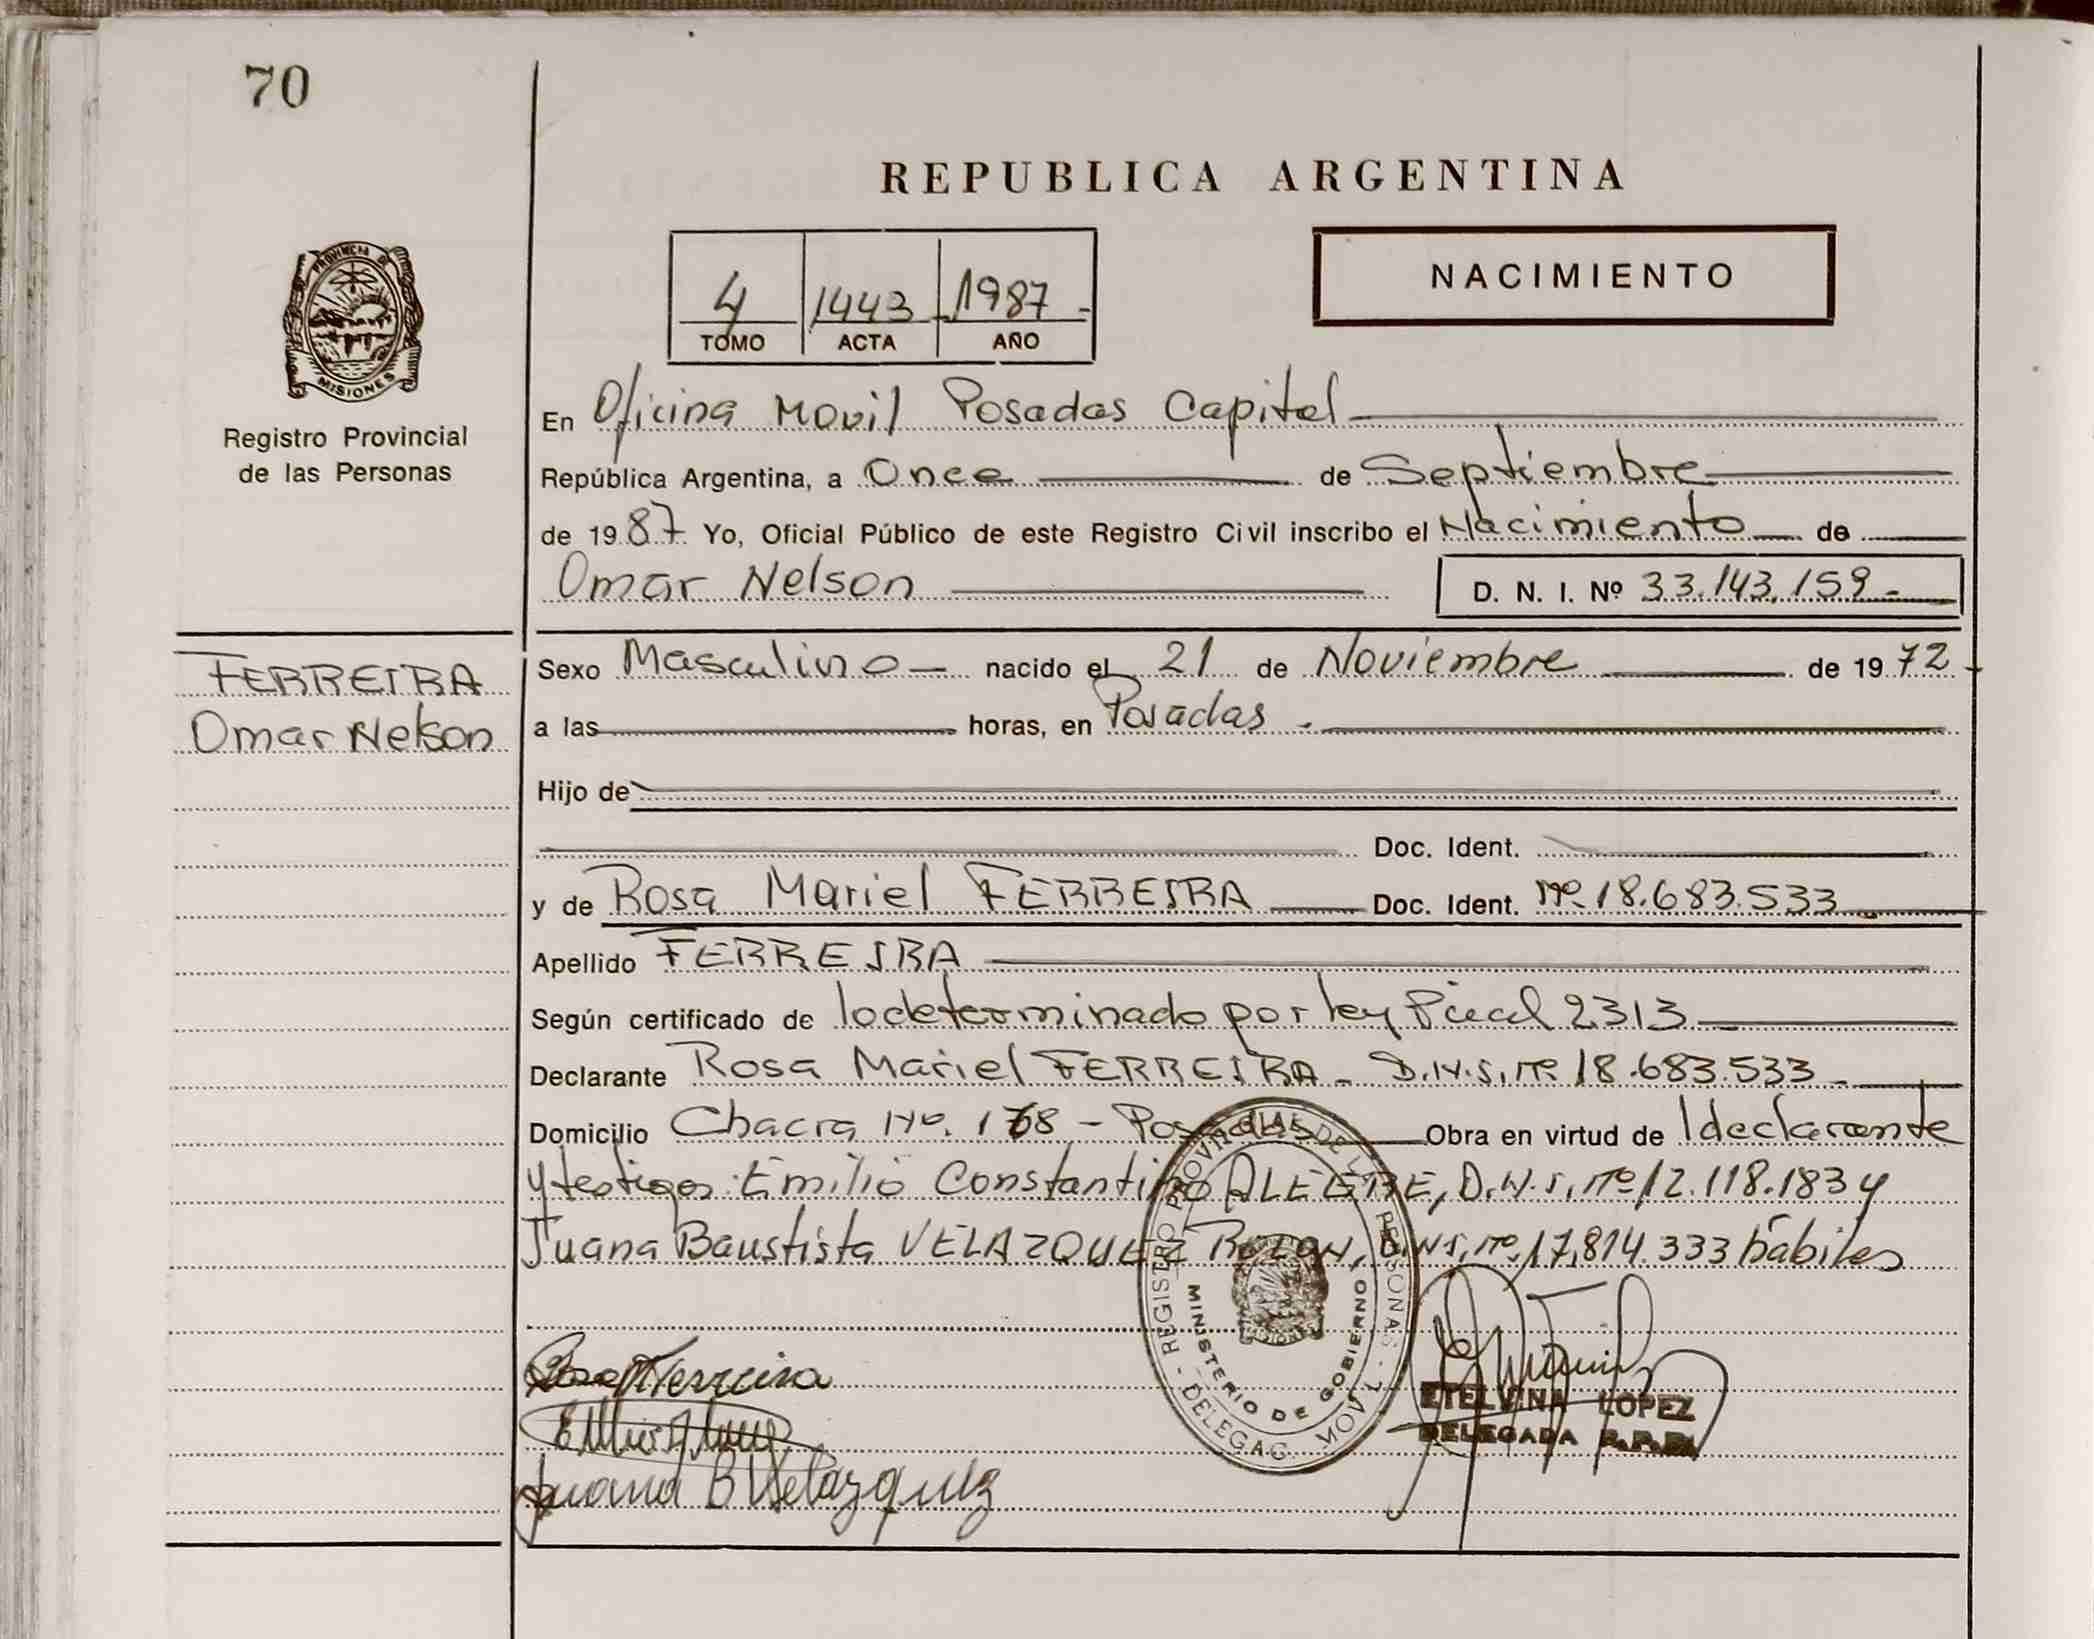 70
REPUBLICA ARGENTINA
PROVINCIA DE
MISIONES
Registro Provincial
de las Personas
4 1443 1987
TOMO ACTA AÑO
NACIMIENTO
En Oficina Movil Posadas Capital
República Argentina, a Once de Septiembre
de 1987 Yo, Oficial Público de este Registro Civil inscribo el Nacimiento de
Omar Nelson D. N. I. Nº 33.143.159
FERREIRA
Omar Nelson
Sexo Masculino nacido el 21 de Noviembre de 1972
a las horas, en Posadas
Hijo de
Doc. Ident.
y de Rosa Mariel FERREIRA Doc. Ident. Nº 18.683.533
Apellido FERREIRA
Según certificado de lo determinado por ley 2313
Declarante Rosa Mariel FERREIRA - D.N.I. Nº 18.683.533
Domicilio Chacra Nº. 168 - Posadas Obra en virtud de l declarante
y testigos: Emilio Constantino ALEGRE, D.N.I. Nº 12.118.183 y
Juana Baustista VELAZQUEZ ROLON, D.N.I. Nº 17.814.333 hábiles
REGISTRO PROVINCIAL DE LAS PERSONAS - DELEGAC. MOVIL -
MINISTERIO DE GOBIERNO
Rosa M Ferreira
Juana B Velazquez
ETELVINA LOPEZ
DELEGADA R.P.P.